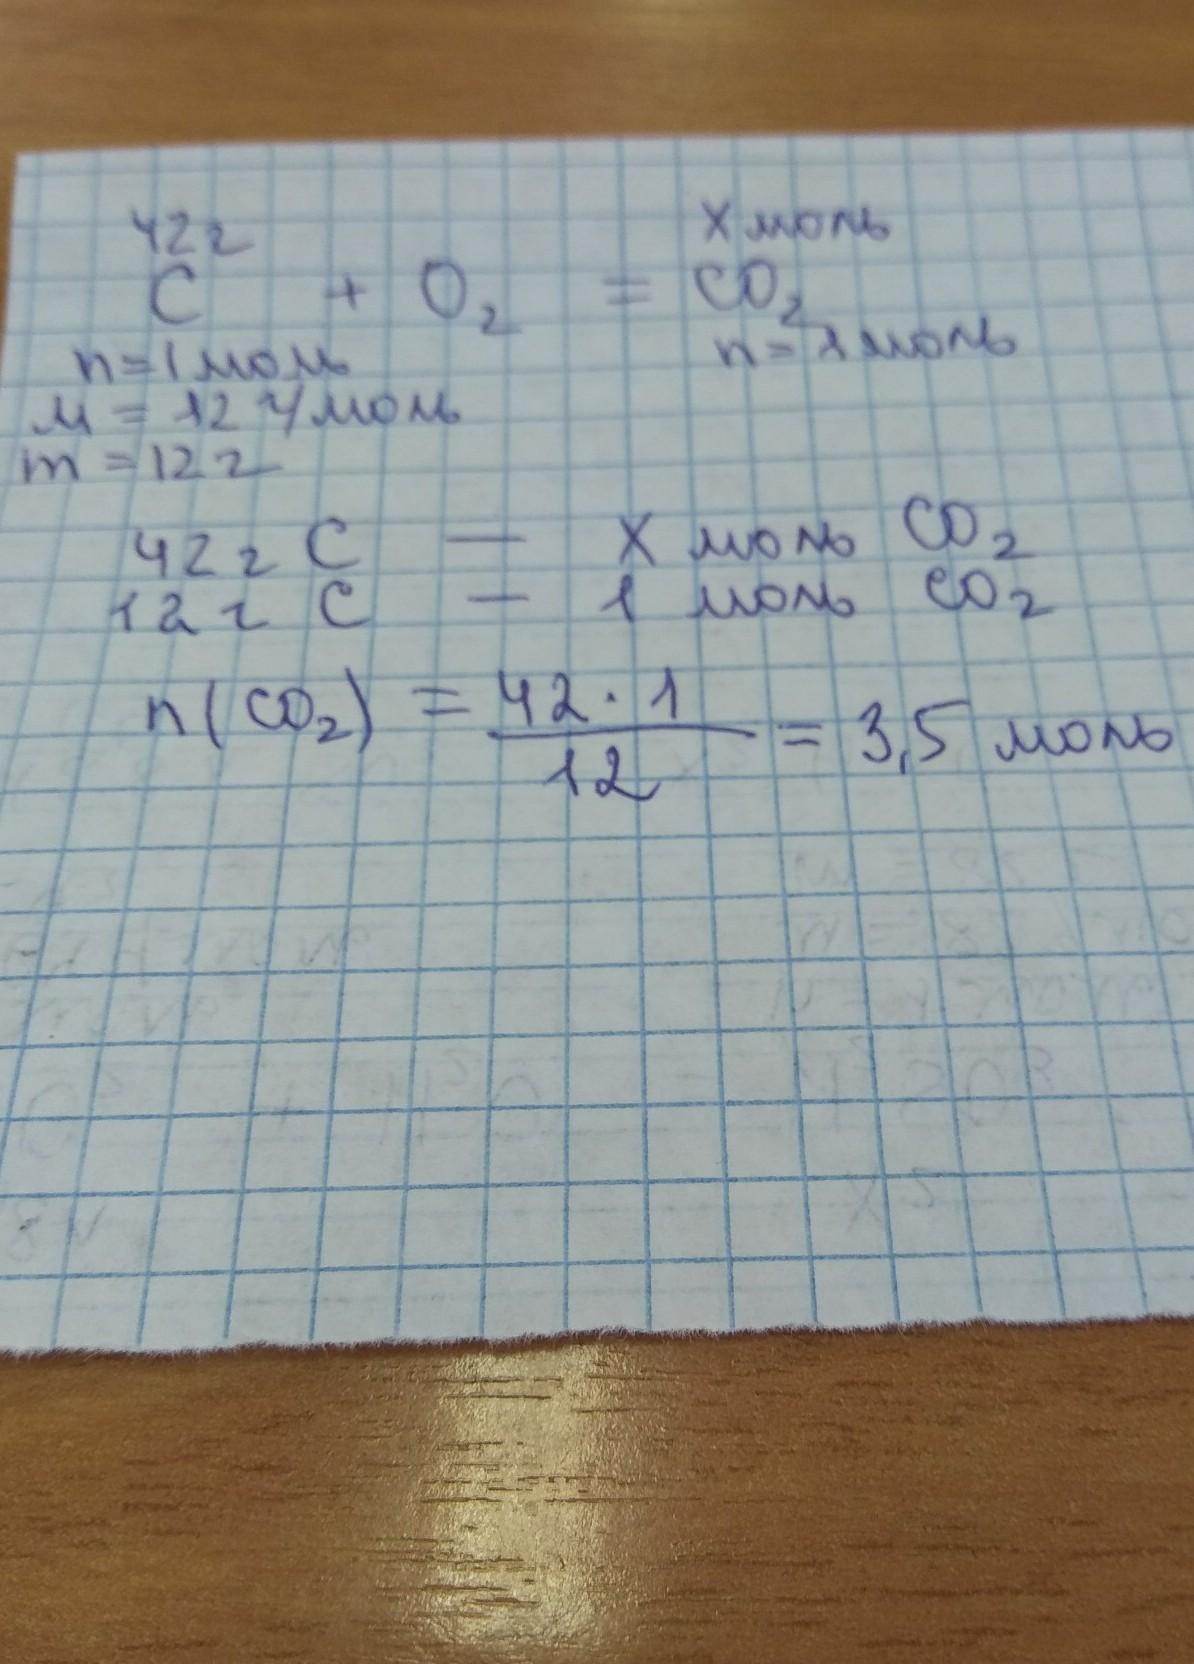 42 г х моль
C + O₂ = CO₂
n = 1 моль n = 1 моль
M = 12 г/моль
m = 12 г
42 г C — х моль CO₂
12 г C — 1 моль CO₂
n(CO₂) = 42 · 1 / 12 = 3,5 моль